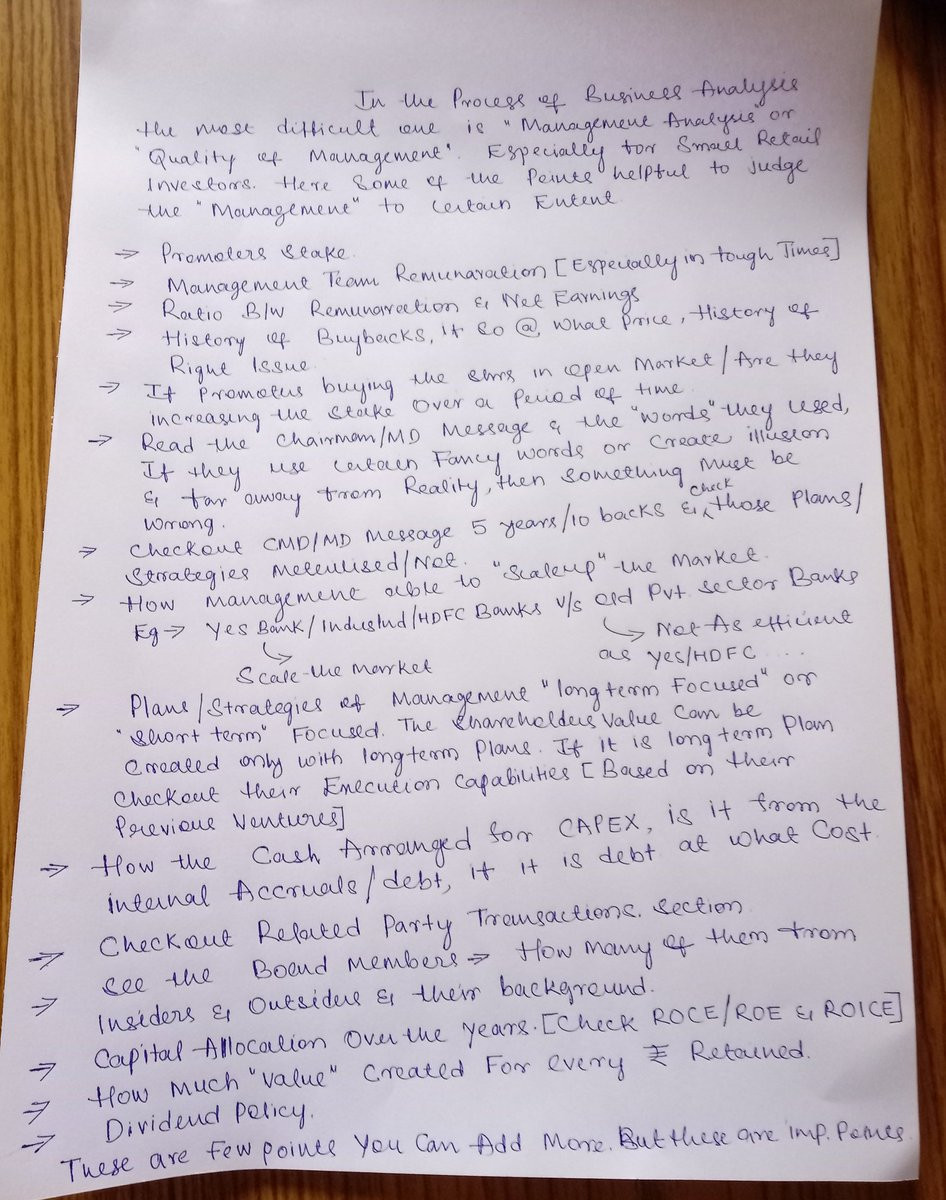 In the Process of Business Analysis
the most difficult one is "Management Analysis" or
"Quality of Management". Especially for Small Retail
Investors. Here Some of the Points helpful to Judge
the "Management" to Certain Entent
→ Promoters Stake.
→ Management Team Remunaration [Especially in tough Times]
→ Ratio B/w Remunaration & Net Earnings
→ History of Buybacks, If so @ what Price, History of
Rique Issue.
→ If Promoters buying the Shrs in open Market / Are they
increasing the stake over a Period of time
→ Read the Chairman/MD Message & the "words" they used,
If they use certain Fancy words or Create illusion
& far away from Reality, then something Must be
Wrong.
→ Checkout CMD/MD Message 5 years/10 backs & check those Plans/
Strategies Meterilised/Not.
→ How Management able to "Scaleup" the Market.
Eg → Yes Bank/IndusInd/HDFC Banks v/s old Pvt sector Banks
↳ Scale the Market
↳ Not As efficient
as Yes/HDFC ....
→ Plans/Strategies of Management "long term Focused" or
"Short term" Focused. The Shareholders Value Can be
Created only with longterm Plans. If It is long term Plan
Checkout their Execution Capabilities [Based on their
Previous Ventures]
→ How the Cash Arranged for CAPEX, is it from the
internal Accruals/debt, if it is debt at what Cost.
→ Checkout Related Party Transactions. Section
→ See the Board Members → How many of them from
Insiders & Outsiders & their background.
→ Capital Allocation Over the years. [Check ROCE/ROE & ROICE]
→ How Much "Value" Created For every ₹ Retained.
→ Dividend Policy.
These are Few points You Can Add More. But these are imp. Points.